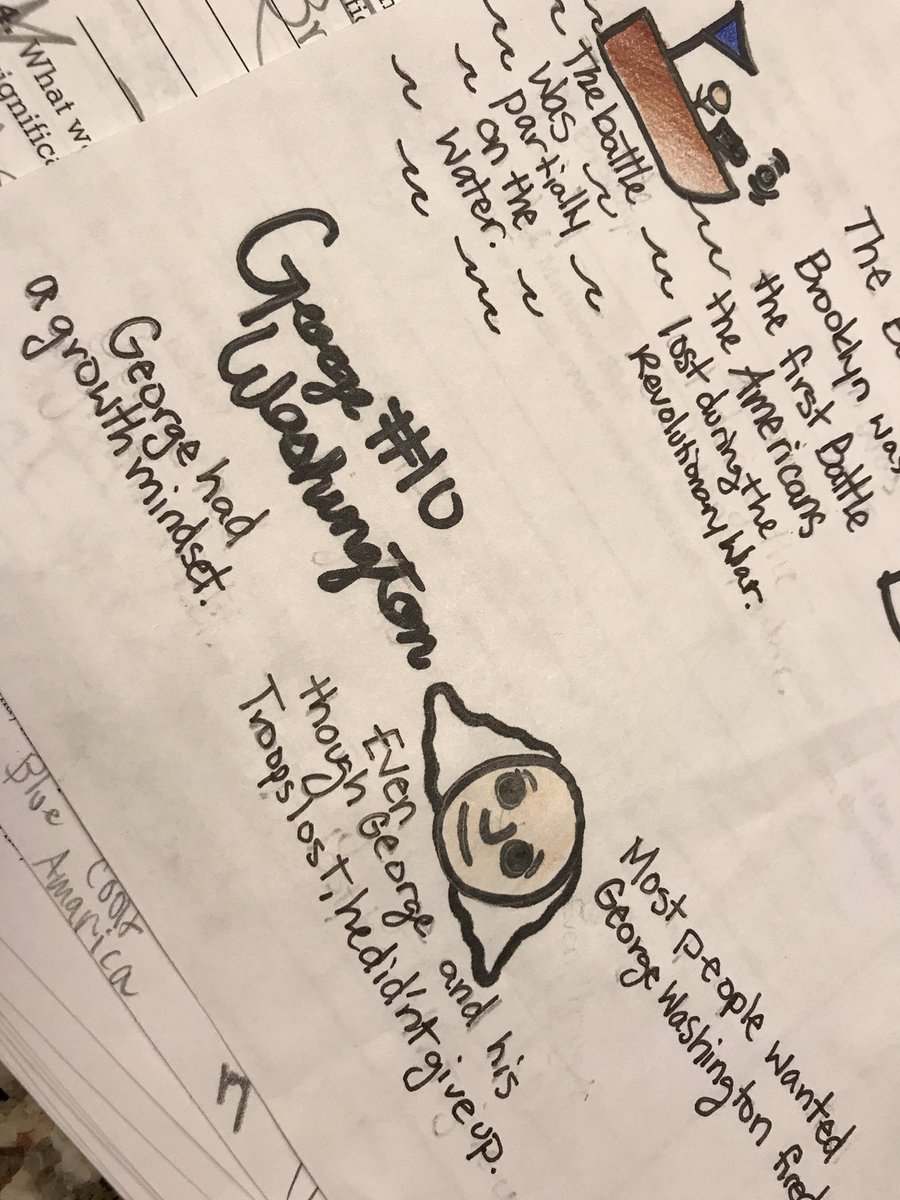 4. What w
The battle
was
partially
on the
water.
The B
Brooklyn was
the first Battle
the Americans
lost during the
Revolutionary War.
#10
George
Washington
George had
a growth mindset.
Even
though George and his
Troops lost, he did'nt give up.
Most people wanted
George Washington fired
Blue Coat
Amarica
7